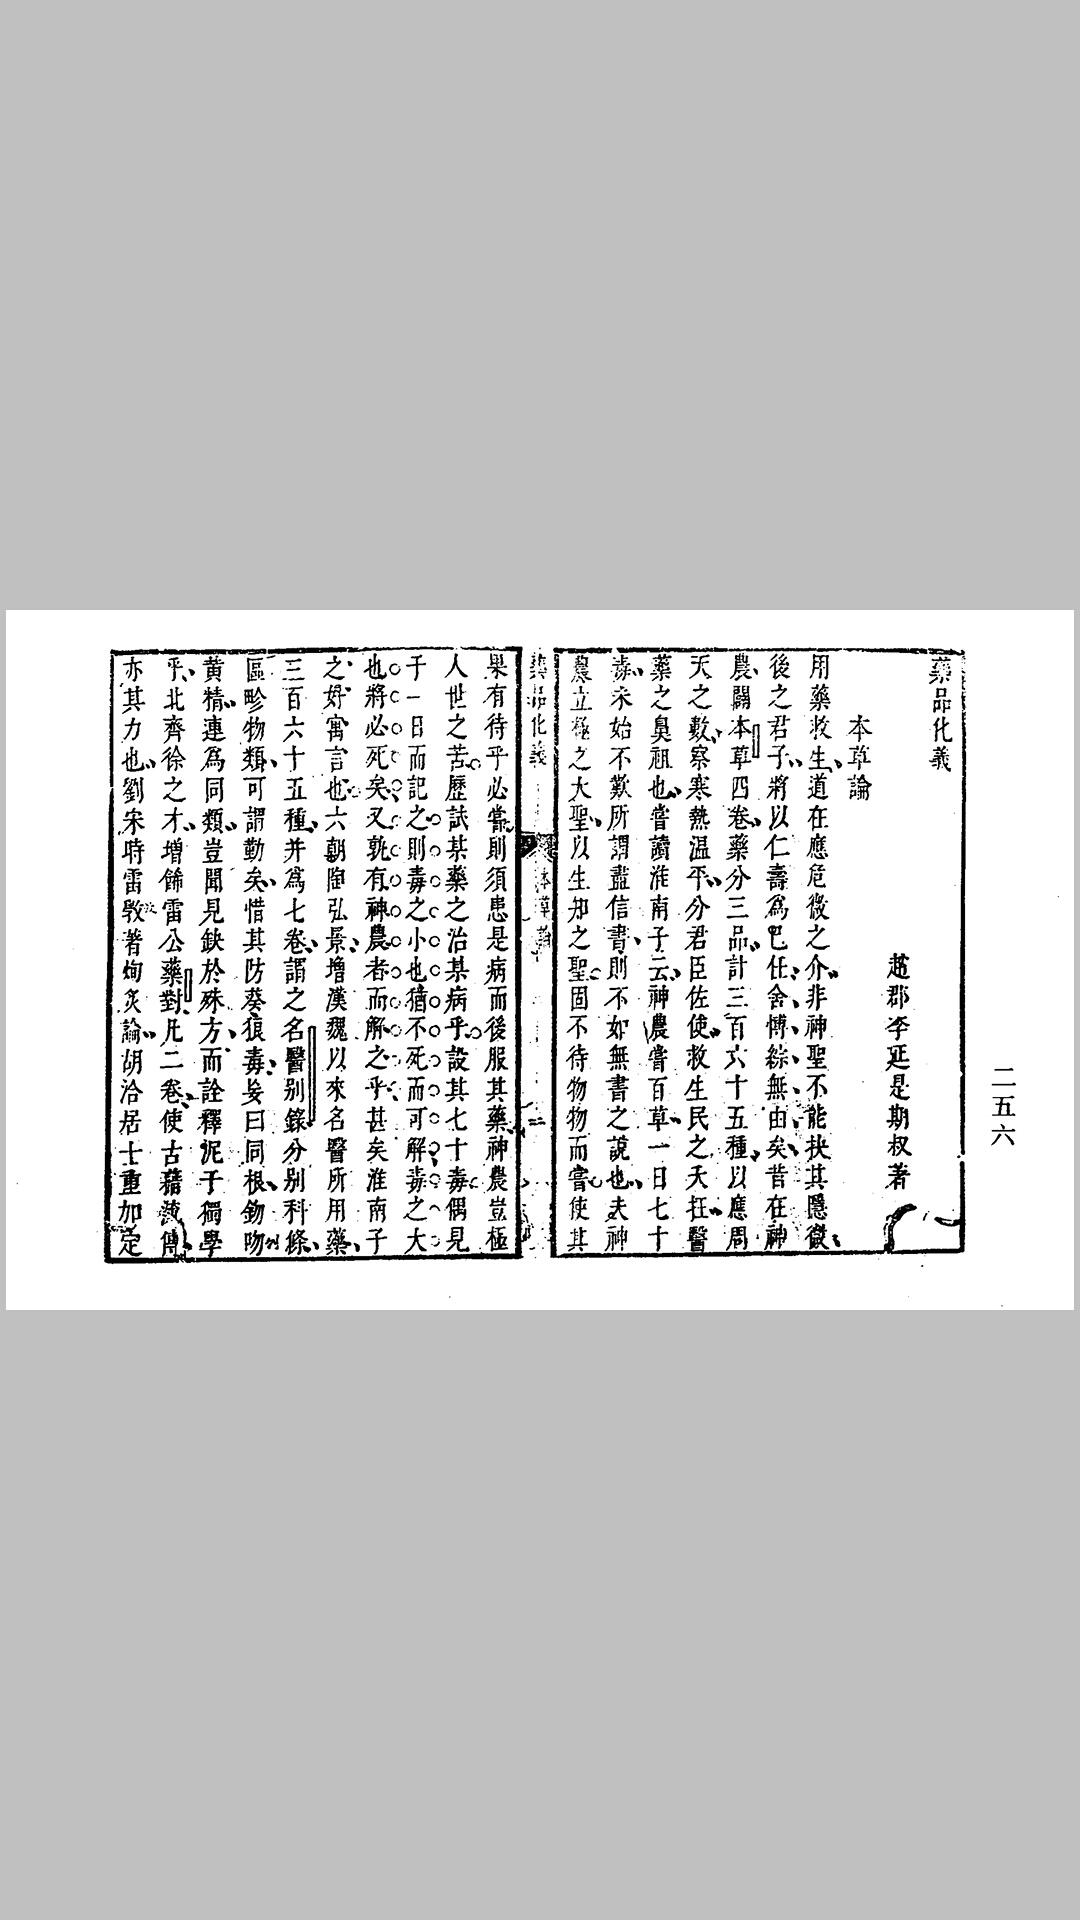 藥品化義
趙郡李延是期叔著
本草論
用藥救生道在應危微之介非神聖不能抉其隱微
後之君子將以仁壽爲巳任舍博綜無由矣昔在神
農闢本草四卷藥分三品計三百六十五種以應周
天之數察寒熱温平分君臣佐使救生民之夭枉醫
藥之鼻祖也嘗讀淮南子云神農嘗百草一日七十
毒未始不歎所謂盡信書則不如無書之說也夫神
農立極之大聖以生知之聖固不待物物而嘗使其
藥品化義
本草論
二
果有待乎必嘗則須患是病而後服其藥神農豈極
人世之苦歷試某藥之治某病乎設其七十毒偶見
于一日而記之則毒之小也猶不死而可解毒之大
也將必死矣又孰有神農者而解之乎甚矣淮南子
之好寓言也六朝陶弘景增漢魏以來名醫所用藥
三百六十五種并爲七卷謂之名醫别錄分别科條
區畛物類可謂勤矣惜其防葵狼毒妄曰同根鉤吻
黄精連爲同類豈聞見缺於殊方而詮釋泥于獨學
乎北齊徐之才增飾雷公藥對凡二卷使古籍流傳
亦其力也劉宋時雷斆著炮炙論胡洽居士重加定
二五六